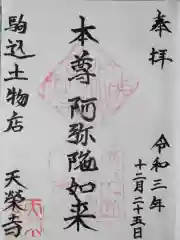 奉拝
令和三年
十二月二十五日
本尊阿弥陀如来
駒込土物店
天榮寺